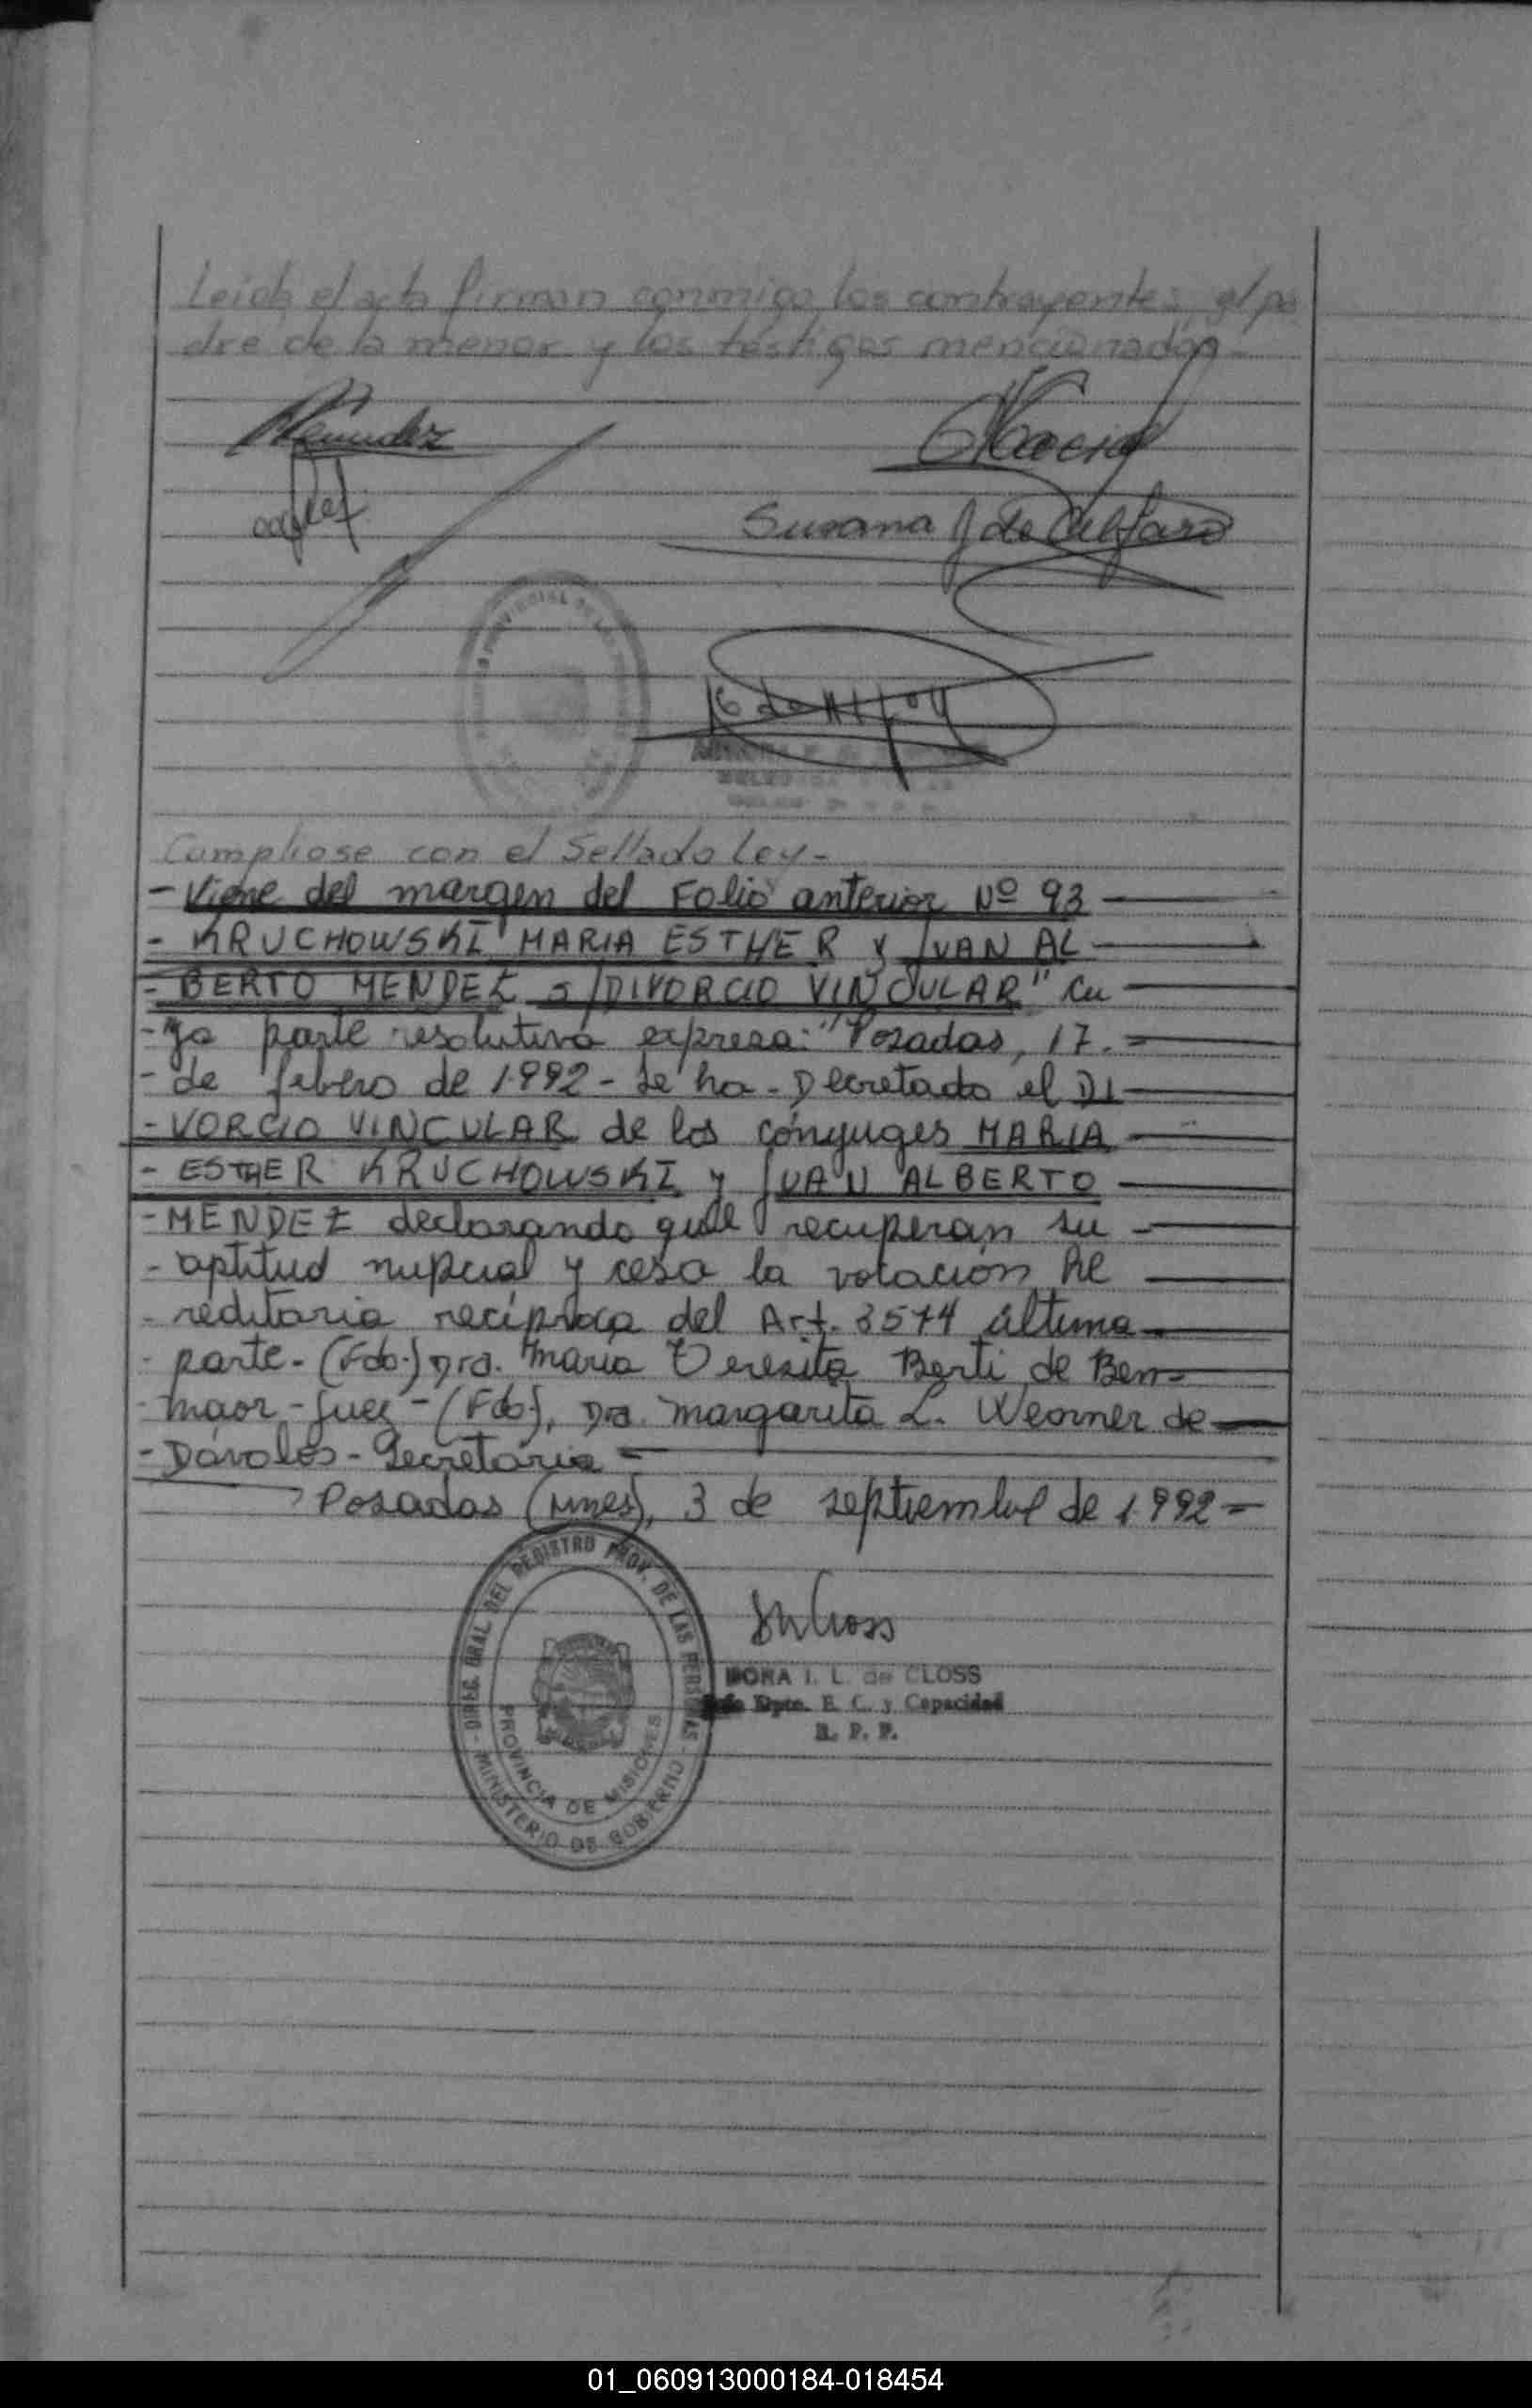 Leida el acta firman conmigo los contrayentes, el pa
dre de la menor y los testigos mencionados-
Mendez
Susana J de Alfaro
Cumpliose con el Sellado Ley-
- Viene del margen del Folio anterior Nº 93
- KRUCHOWSKI MARIA ESTHER y JUAN AL
- BERTO MENDEZ s/DIVORCIO VINCULAR" Cu
- ya parte resolutiva expresa: "Posadas, 17.-
- de febrero de 1.992 - Se ha - Decretado el DI
- VORCIO VINCULAR de los cónyuges MARIA
- ESTHER KRUCHOWSKI y JUAN ALBERTO
- MENDEZ declarando que recuperan su -
- aptitud nupcial y cesa la vocación he
- reditaria recíproca del Art. 3574 última
- parte - (Fdo.) Dra. María Teresita Berti de Ben-
- maor - Juez - (Fdo), Dra. Margarita L. Weorner de
- Dávalos - Secretaria =
Posadas (Mnes), 3 de septiembre de 1.992 =
DIREC. GRAL DEL REGISTRO PROV. DE LAS PERSONAS
PROVINCIA DE MISIONES
- MINISTERIO DE GOBIERNO -
DORA I. L. de CLOSS
Dpto. E. C. y Capacidad
R. P. P.
01_060913000184-018454